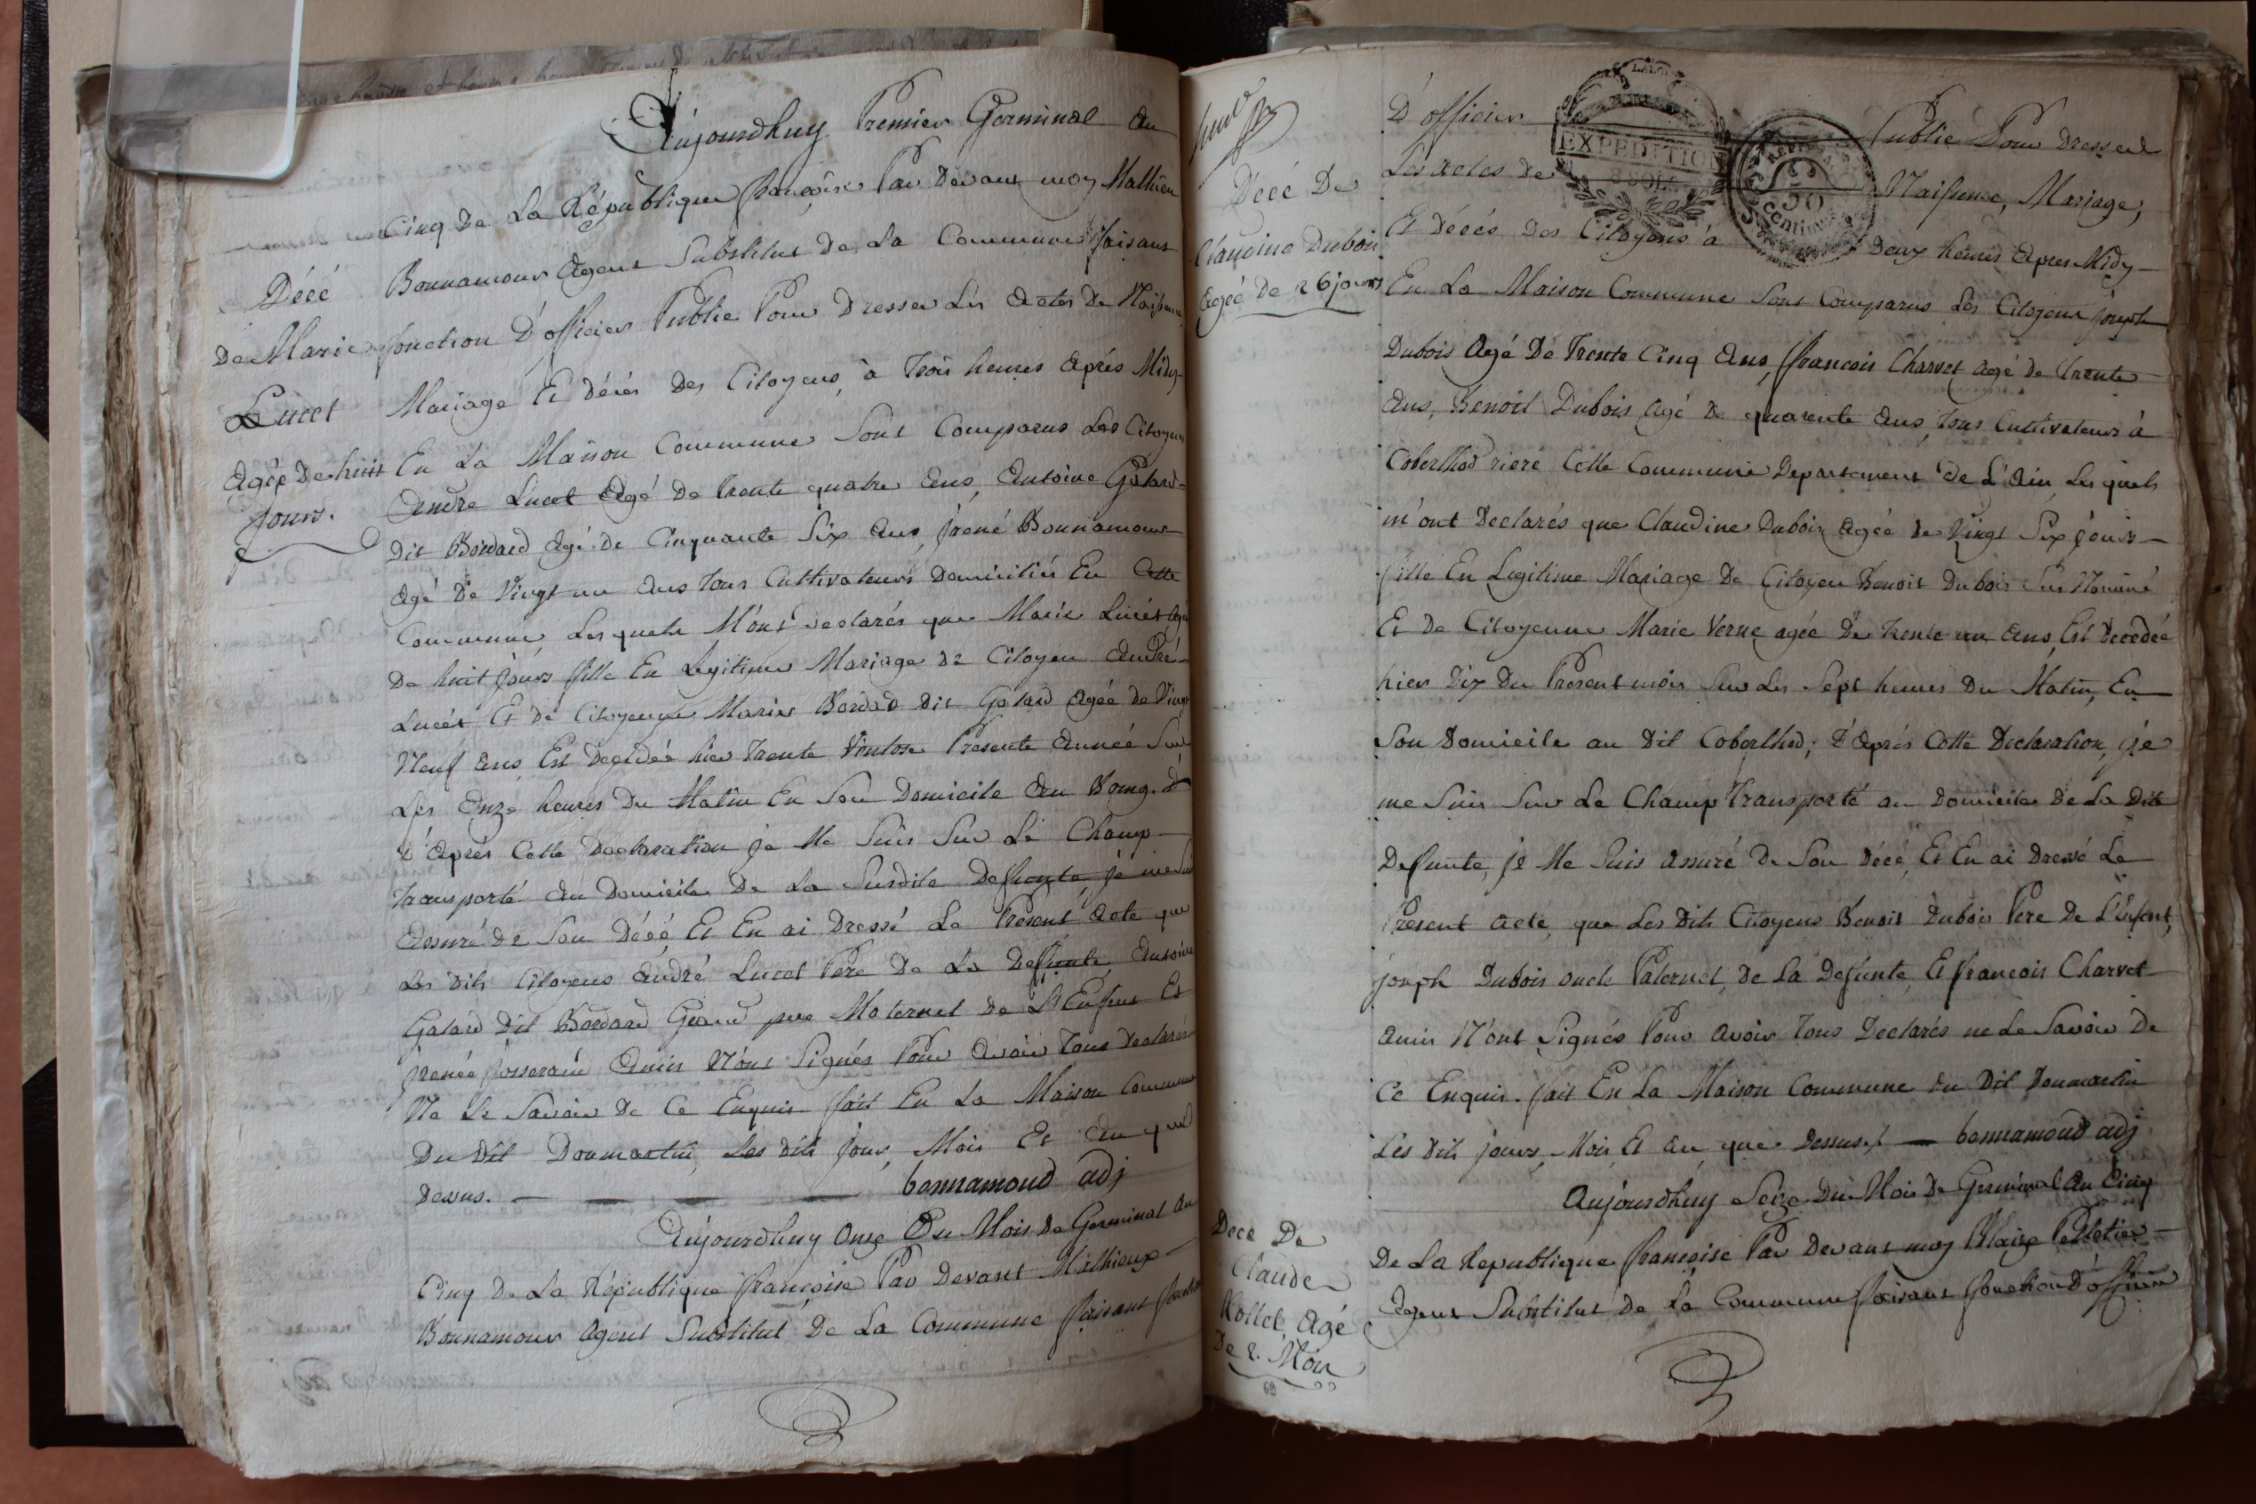 Aujourdhuy Premier Germinal an
Cinq De La République françoise Par Devant moy Mathieu
Bonnamour Agent Substitut De La Commune faisant
fonction D'officier Public Pour Dresser Les Actes De Naissance
Mariage Et décès Des Citoyens, à Trois heures Après Midy
En La Maison Commune Sont Comparus Les Citoyens
André Lucet Agé De trente quatre ans, Antoine Galand
Dit Bordard Agé De Cinquante Six ans, Bonnamour
Agé De Vingt un ans Tous Cultivateurs Domiciliés En Cette
Commune Les quels M'ont declarés que Marie Lucet Agée
De huit jours fille En Legitime Mariage De Citoyen André
Lucet Et De Citoyenne Marie Dit Galand Agée De Vingt
Neuf ans Est Decedée hier Trente Ventose Presente année Sur
Les Onze heures Du Matin En Son Domicile Au Bourg. &
D'après Cette Declaration je Me Suis Sur Le Champ
Transporté Au Domicile De La Susdite Defunte, je me Suis
Assuré De Son Décé Et En ai Dressé Le Présent Acte que
Les Dits Citoyens André Lucet Pere De La Defunte, Antoine
Galand Dit Bordard Grand pere Maternel De L'Enfent Et
Amis N'ont Signés Pour Avoir Tous Declarés
Ne Le Savoir De Ce Enquis fait En La Maison Commune
Du Dit Donmartin, Les Dits jour, Mois Et An que
Dessus. bonnamoud adj
Aujourdhuy Onze Du Mois De Germinal An
Cinq De La République françoise Par Devant Mathieux
Bonnamour Agent Substitut De La Commune faisant fonction
Décé
De Marie
Lucet
Agée De huit
Jours.
Décé De
Claudine Dubois
Agée De 26 jours
D'officier Public Pour Dresser
Les Actes de Naissence, Mariage,
EXPEDITION
50
Centimes
Et Décés Des Citoyens à Deux heures Apres Midy
En La Maison Commune Sont Comparus Les Citoyens joseph
Dubois Agé De Trente Cinq Ans, francois Charvet Agé De Trente
Ans, Benoit Dubois Agé De quarente Ans, Tous Cultivateurs à
Coberthod riere Cette Commune Departement De L'Ain, Les quels
m'ont Declarés que Claudine Dubois Agée De Vingt Six jours
fille En Legitime Mariage De Citoyen Benoit Dubois Sus Nommé
Et De Citoyenne Marie Verne agée De Trente un Ans, Est Decedée
hier Dix Du Present mois Sur Les Sept heures Du Matin, En
Son Domicile au Dit Coberthod; D'après Cette Declaration, je
me Suis Sur Le Champ Transporté au Domicile De La Dite
Defunte, je Me Suis Assuré De Son Décé, Et En ai Dressé Le
Present Acte, que Les Dits Citoyens Benoit Dubois Pere De L'Enfent,
joseph Dubois oncle Paternel, De La Defunte, Et francois Charvet
Amis N'ont Signés Pour Avoir Tous Declarés ne Le Savoir De
Ce Enquis. fait En La Maison Commune Du Dit Donmartin
Les Dits jours, Mois Et An que Dessus. bonnamoud adj
Aujourdhuy Seize Du Mois De Germinal An Cinq
De La Republique françoise Par Devant moy Pelletier
Agent Substitut De La Commune faisant fonction D'officier
Decé De
Claude
Agé
De 2. Mois